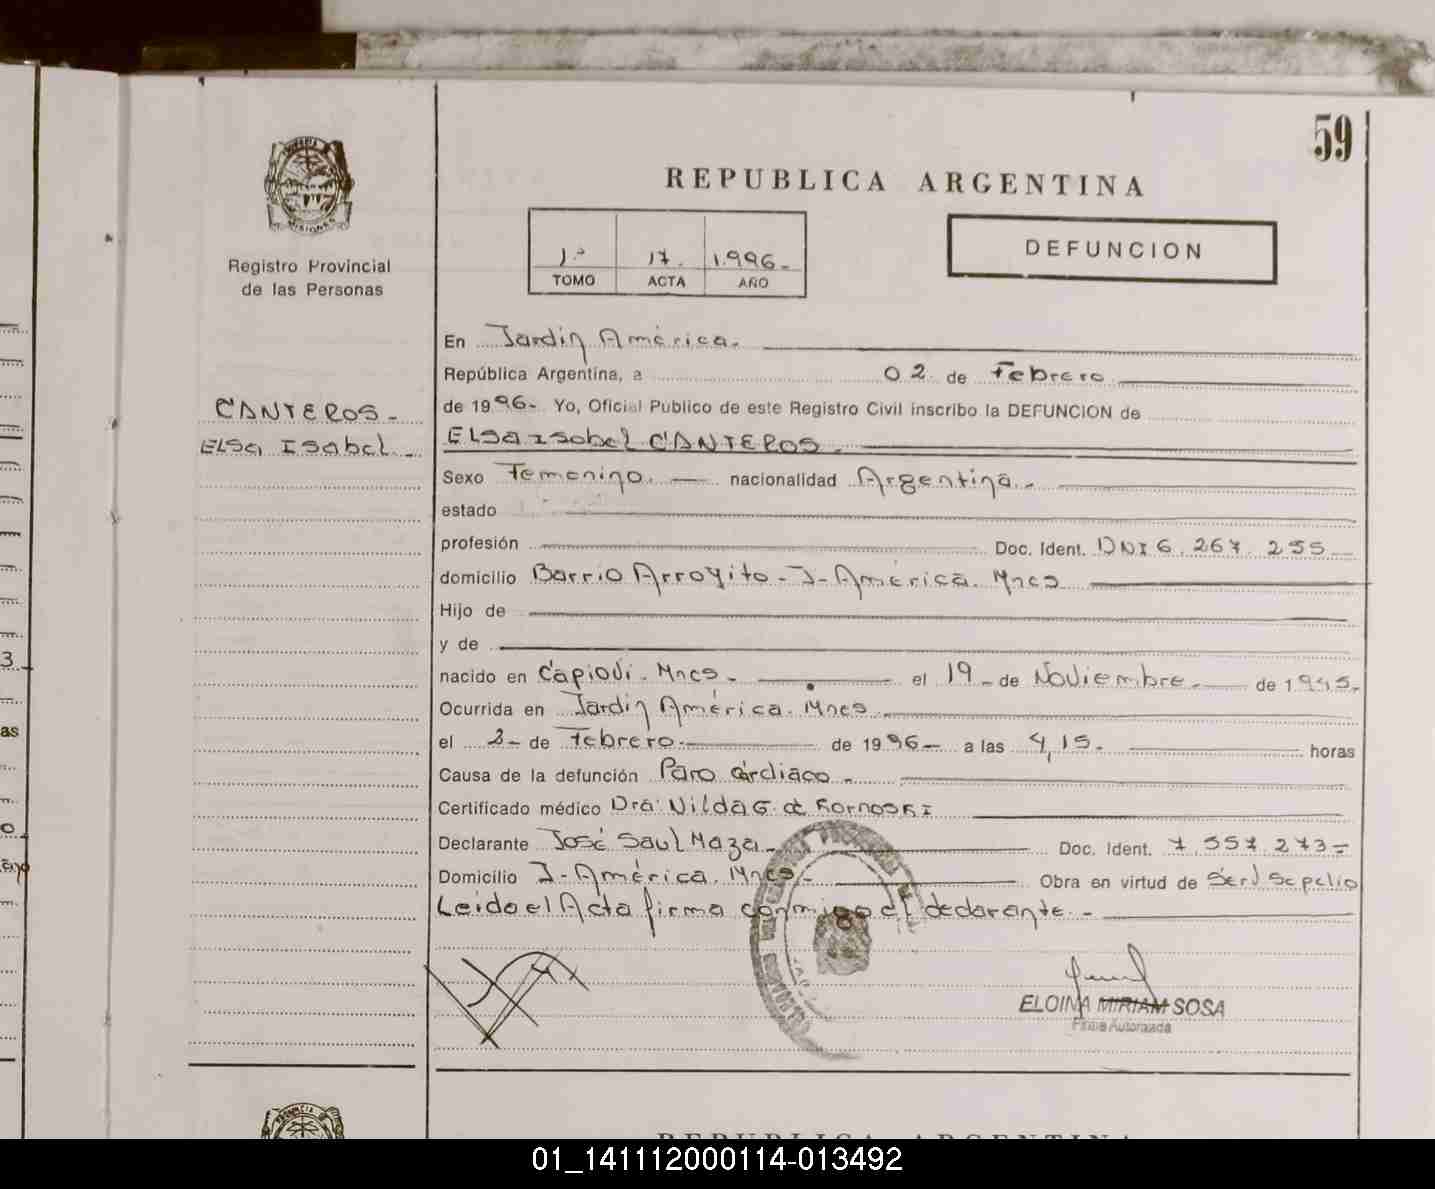 59
REPUBLICA ARGENTINA
DEFUNCION
1º 17. 1.996_
TOMO ACTA AÑO
PROVINCIA DE
MISIONES
Registro Provincial
de las Personas
CANTEROS_
ELSA ISabel._
En Jardín América.
República Argentina, a 02 de Febrero
de 1996_ Yo, Oficial Público de este Registro Civil inscribo la DEFUNCION de
ELSA ISabel CANTEROS.
Sexo Femenino. nacionalidad Argentina._
estado
profesión Doc. Ident. DNI 6.267.255
domicilio Barrio Arroyito_J_América. Mnes
Hijo de
y de
nacido en Capioví. Mnes_ el 19_de Noviembre_ de 1945_
Ocurrida en Jardín América. Mnes
el 2_ de Febrero. de 1996_ a las 4,15. horas
Causa de la defunción Paro cárdiaco_
Certificado médico Dra. Nilda G. de Kornoski
Declarante José Saul Maza_ Doc. Ident. 7.557.273_
Domicilio J_América. Mnes_ Obra en virtud de Serv Sepelio
Leido el Acta firma conmigo el declarante._
ELOINA MIRIAM SOSA
Firma Autorizada
3
as
o
REPUBLICA ARGENTINA
01_141112000114-013492